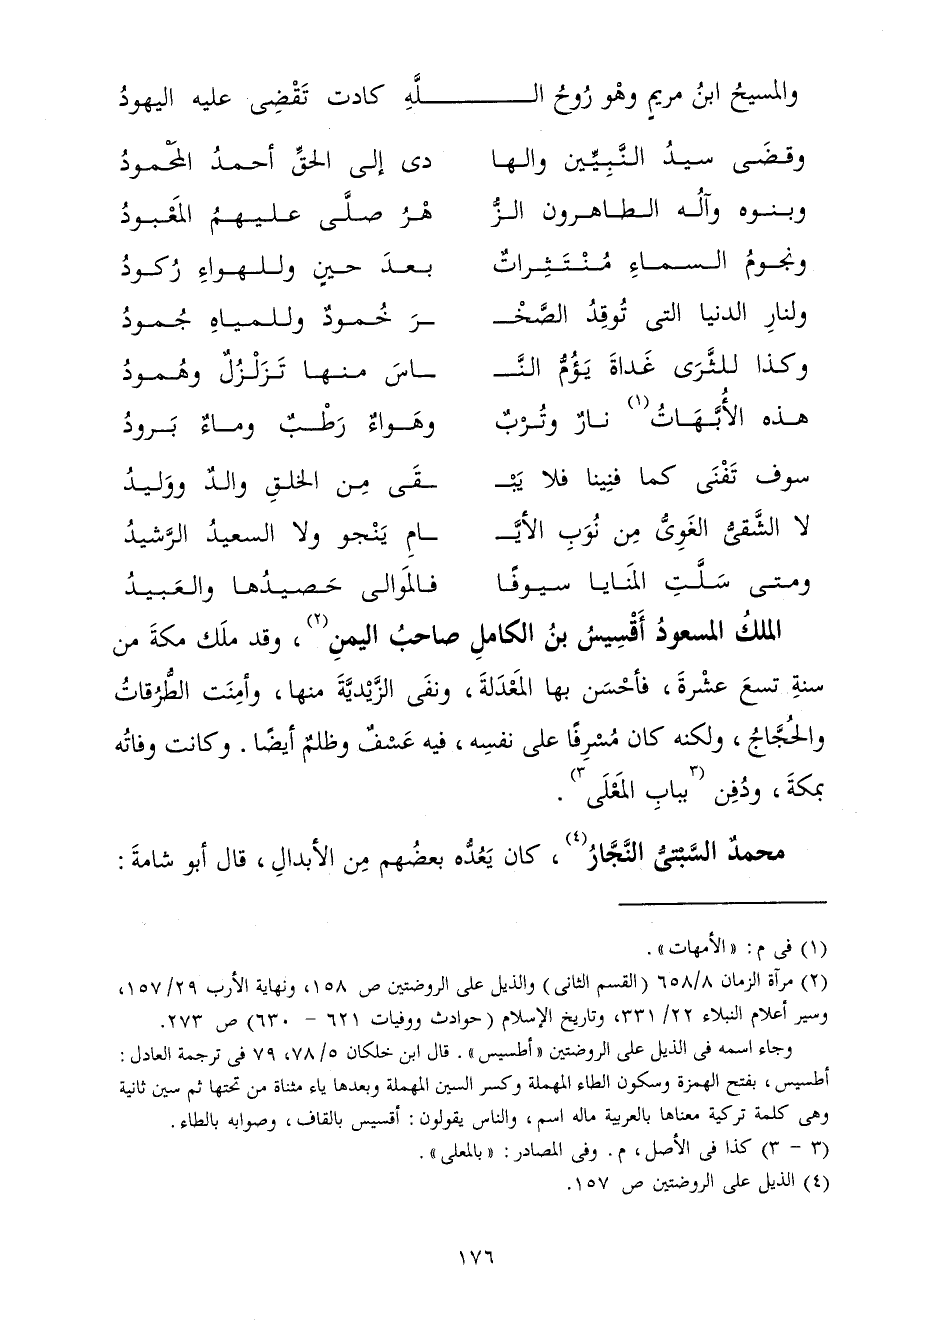 والمسيحُ ابنُ مريمٍ وهْو رُوحُ الـ ـلَّهِ كادت تَقْضِى عليه اليهودُ
وقضَى سيدُ النَّبِيِّين والها دى إلى الحقِّ أحمدُ المحْمودُ
وبنوه وآلُه الطاهرون الزُّ هْرُ صلَّى عليهمُ المَعْبودُ
ونجومُ السماءِ مُنْتَثِراتٌ بعدَ حينٍ وللهواءِ رُكودُ
ولنارِ الدنيا التى تُوقِدُ الصَّخْـ ـرَ خُمودٌ وللمياهِ جُمودُ
وكذا للثَّرَى غَداةَ يَؤُمُّ النَّـ ـاسَ منها تَزَلْزُلٌ وهُمودُ
هذه الأُبَّهاتُ(١) نارٌ وتُرْبٌ وهَواءٌ رَطْبٌ وماءٌ بَرودُ
سوف تَفْنَى كما فنِينا فلا يَبْـ ـقَى مِن الخلقِ والدٌ ووَليدُ
لا الشَّقىُّ الغَوِىُّ مِن نُوَبِ الأيَّـ ـامِ يَنْجو ولا السعيدُ الرَّشيدُ
ومتى سَلَّتِ المَنايا سيوفًا فالمَوالى حَصيدُها والعَبيدُ
الملكُ المسعودُ أَقْسِيسُ بنُ الكاملِ صاحبُ اليمنِ(٢) ، وقد ملَك مكةَ من
سنةِ تسعَ عشْرةَ ، فأحْسَن بها المَعْدَلةَ ، ونفَى الزَّيْدِيَّةَ منها ، وأمِنَت الطُّرُقاتُ
والحُجَّاجُ ، ولكنه كان مُسْرِفًا على نفسِه ، فيه عَسْفٌ وظلمٌ أيضًا . وكانت وفاتُه
بمكةَ ، ودُفِن (٣ ببابِ المَعْلَى ٣) .
محمدٌ السَّبْتىُّ النَّجَّارُ(٤) ، كان يَعُدُّه بعضُهم مِن الأبدالِ ، قال أبو شامةَ :
(١) فى م : «الأمهات» .
(٢) مرآة الزمان ٦٥٨/٨ (القسم الثانى) والذيل على الروضتين ص ١٥٨، ونهاية الأرب ١٥٧/٢٩،
وسير أعلام النبلاء ٢٢/ ٣٣١، وتاريخ الإسلام (حوادث ووفيات ٦٢١ - ٦٣٠) ص ٢٧٣.
وجاء اسمه فى الذيل على الروضتين «أطسيس» . قال ابن خلكان ٥/ ٧٨، ٧٩ فى ترجمة العادل :
أطسيس ، بفتح الهمزة وسكون الطاء المهملة وكسر السين المهملة وبعدها ياء مثناة من تحتها ثم سين ثانية
وهى كلمة تركية معناها بالعربية ماله اسم ، والناس يقولون : أقسيس بالقاف ، وصوابه بالطاء .
(٣ - ٣) كذا فى الأصل ، م . وفى المصادر : «بالمعلى» .
(٤) الذيل على الروضتين ص ١٥٧.
١٧٦